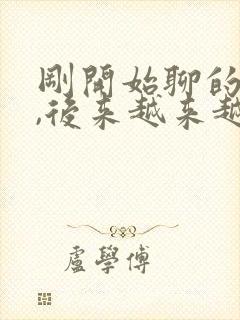 剛開始聊的
,後來越來越
盧學傅